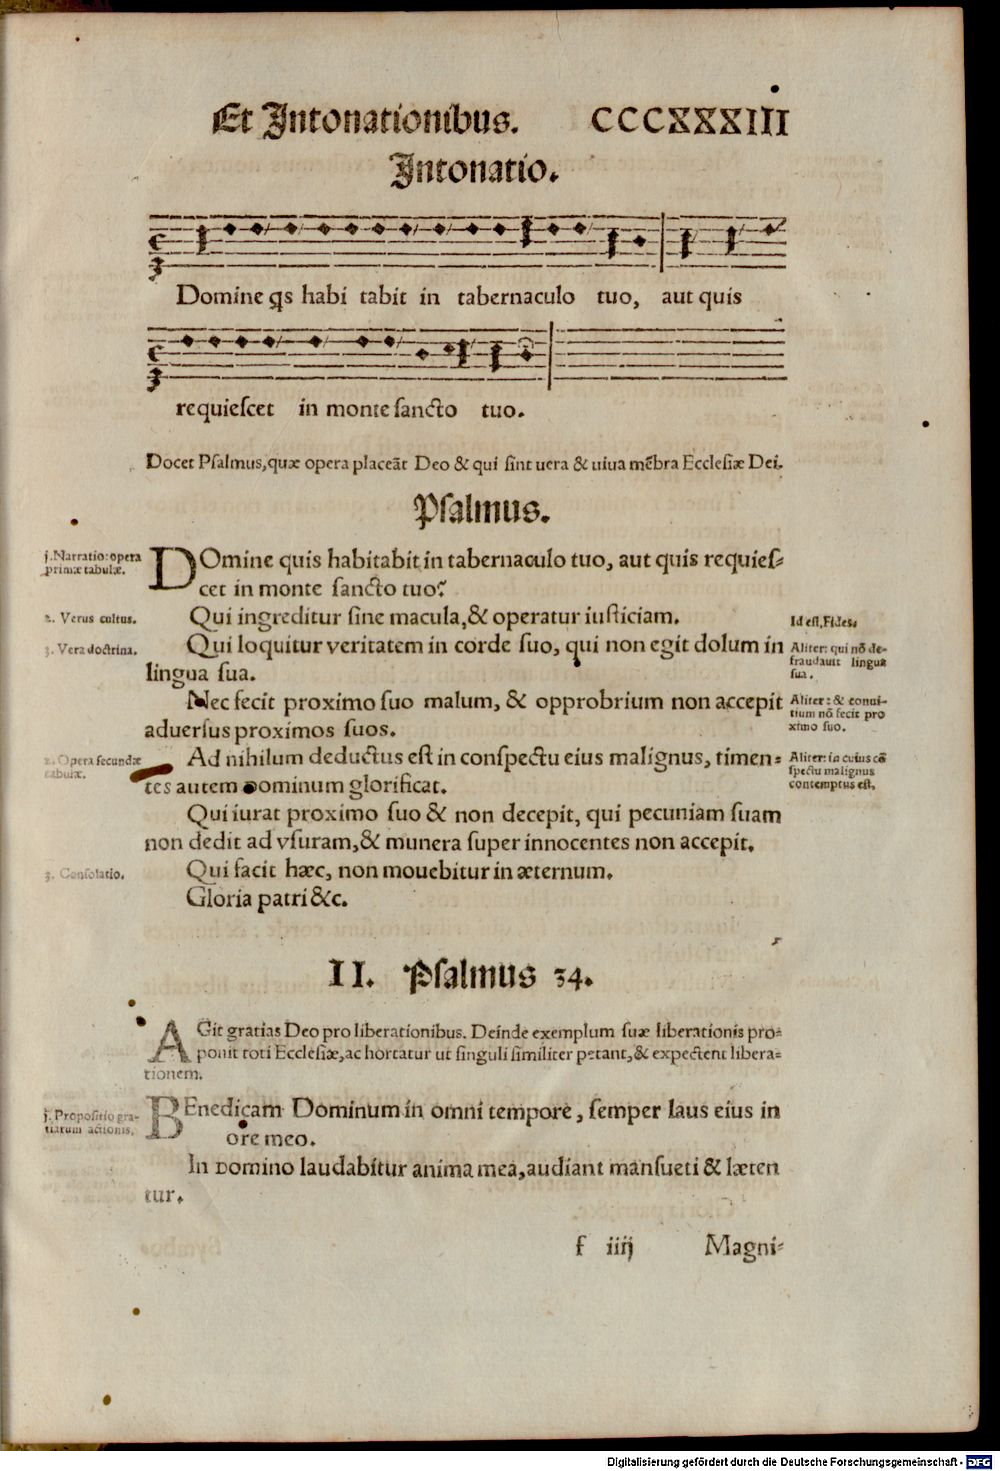 Et Intonationibus. CCCXXXIII
Intonatio.
Domine qs habi tabit in tabernaculo tuo, aut quis
requiescet in monte sancto tuo.
Docet Psalmus, quæ opera placeāt Deo & qui sint uera & uiua mēbra Ecclesiæ Dei.
Psalmus.
j. Narratio: opera
primæ tabulæ.
DOmine quis habitabit in tabernaculo tuo, aut quis requies-
cet in monte sancto tuo?
2. Verus cultus.
Qui ingreditur sine macula, & operatur iusticiam.
Id est, Fides.
3. Vera doctrina.
Qui loquitur veritatem in corde suo, qui non egit dolum in
lingua sua.
Aliter: qui nō de-
fraudauit lingua
sua.
Nec fecit proximo suo malum, & opprobrium non accepit
aduersus proximos suos.
Aliter: & conui-
tium nō fecit pro
ximo suo.
2. Opera secundæ
tabulæ.
Ad nihilum deductus est in conspectu eius malignus, timen-
tes autem Dominum glorificat.
Aliter: in cuius cō
spectu malignus
contemptus est.
Qui iurat proximo suo & non decepit, qui pecuniam suam
non dedit ad vsuram, & munera super innocentes non accepit.
3. Consolatio.
Qui facit hæc, non mouebitur in æternum.
Gloria patri &c.
II. Psalmus 34.
AGit gratias Deo pro liberationibus. Deinde exemplum suæ liberationis pro-
ponit toti Ecclesiæ, ac hortatur ut singuli similiter petant, & expectent libera-
tionem.
j. Propositio gra-
tiarum actionis.
BEnedicam Dominum in omni tempore, semper laus eius in
ore meo.
In Domino laudabitur anima mea, audiant mansueti & læten
tur.
f iiij Magni-
Digitalisierung gefördert durch die Deutsche Forschungsgemeinschaft - DFG